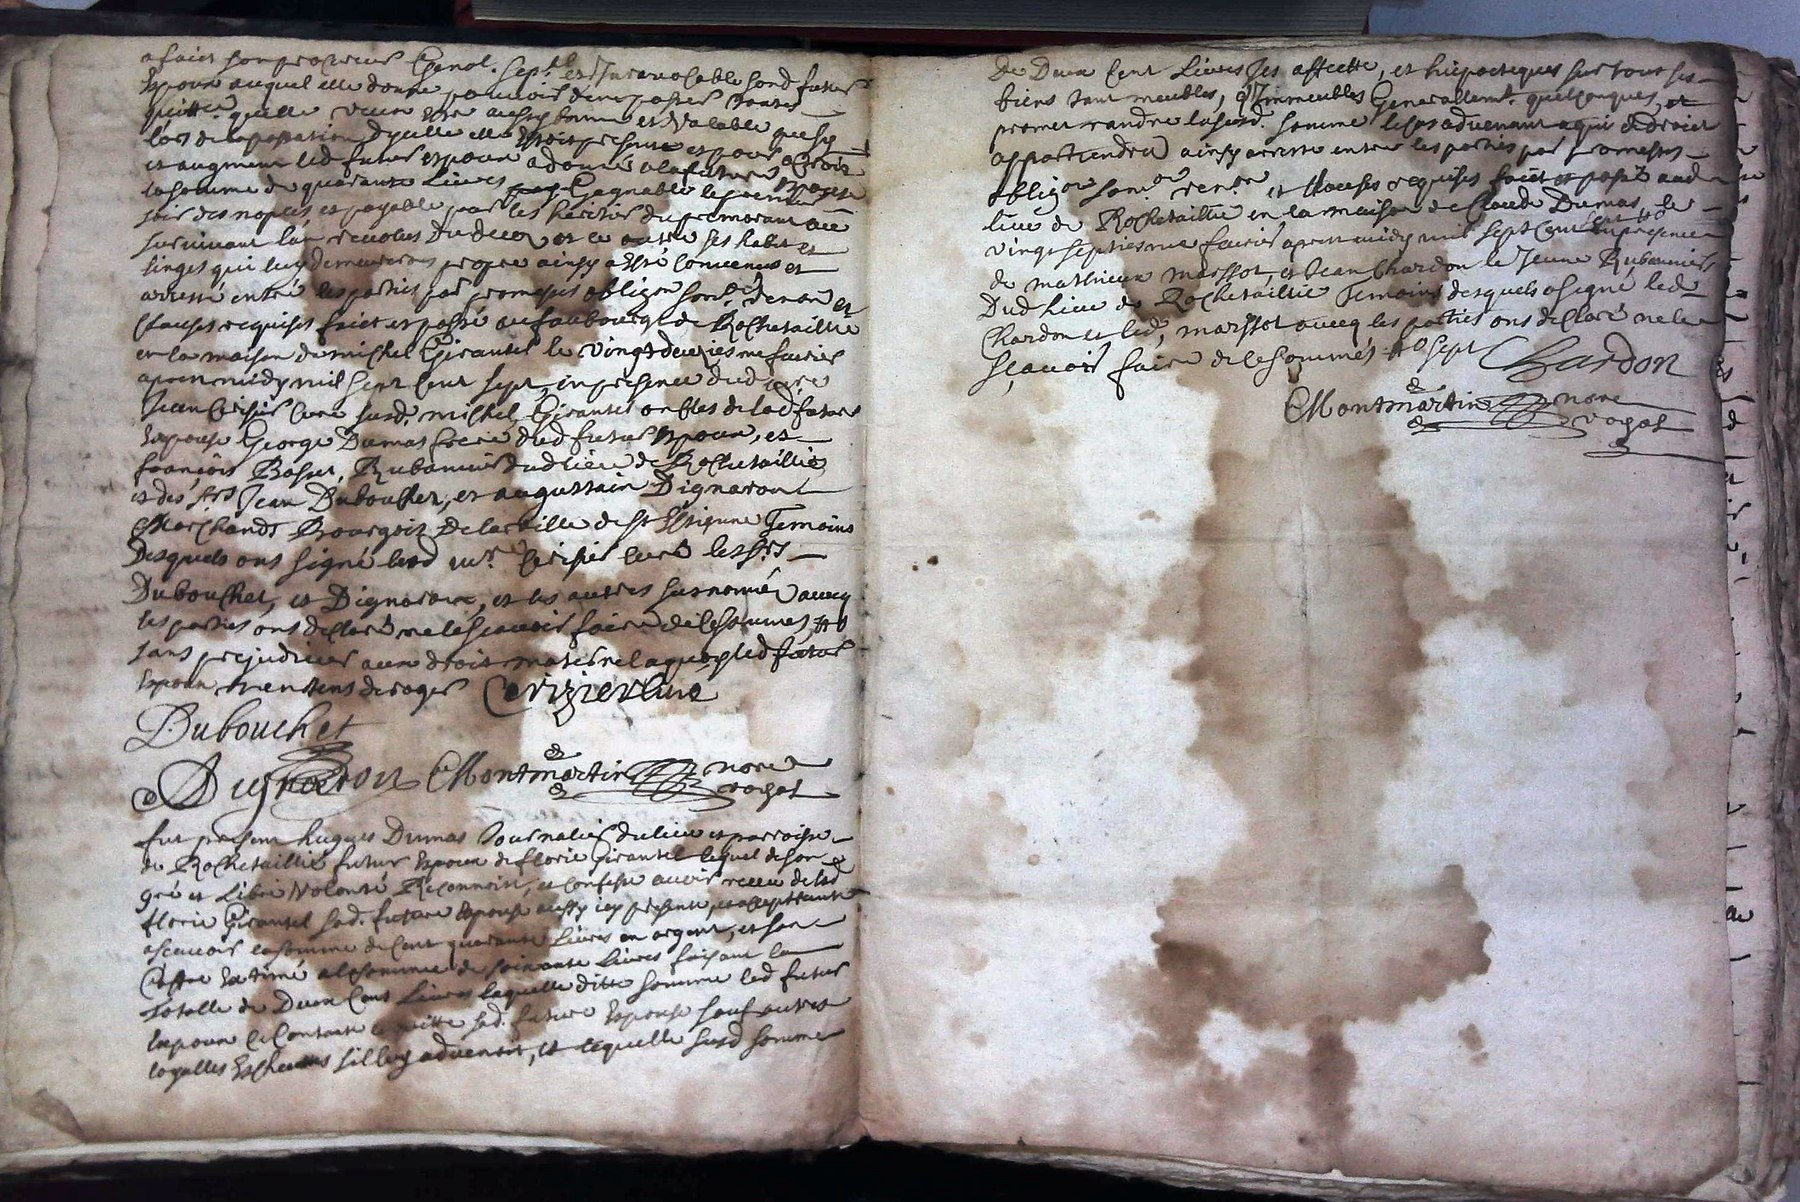 a faict son procureur general special et irrevocable sond futur
Espoux auquel elle donne pouvoir den passer toutes
quittces quelle veut estre aussy bonne et valable que sy
lors de la passation dycelle elle estoit presente et pour
et augment led futur espoux a donné a la future Espouse
la somme de quarante Livres gagnable le premier
soir des nopces et payable par les heritiers du premourant au
survivant lan revolus du deces et en outre ses habits et
linges qui luy demeureront propre ainsy a esté convenus et
arresté entre les parties par promesses obligon et
clauses requises faict et passé au faubourg de Rochetaillie
en la maison de michel Girantet le vingt deuxiesme fevrier
apres midy mil sept cent sept, en presence dud
Jean Cerisier Curé susd. michel Girantet oncles de lad future
Espouse George Dumas frere dud futur Espoux, et
françois Rubannier dud lieu de Rochetaillie
et des srs Jean Dubouchet, et augustain Dignaron
Marchands Bourgois de la ville de st Estienne Temoins
Desquels ont signé led mre Cerisier Curé les srs
Dubouchet, et Dignaron, et les autres surnomés avecq
les parties ont declaré ne le scavoir faire de le sommés
sans prejudicier aux droit maternel auquel led futur
Espoux nentens deroger Cerizier Curé
Dubouchet
Dignaron Montmartin nore
royal
fut present hugues Dumas Journalier du lieu et parroisse
de Rochetaillie futur Espoux de florie Girantet lequel de son
gré et Libre Volonté Reconnoit, et confesse avoir receu de lad
florie Girantet sad. future Espouse aussy icy presente et acceptante
a scavoir la somme de cent quarante Livres en argent, et son
Coffre Estimé a la somme de soixante Livres faisant la
totalle de Deux Cent Livres laquelle ditte somme led futur
Espoux se Contente et quitte sad. future Espouse sauf autres
loyalles Exceptions sil luy advenoit, et laquelle susd somme
de Deux Cent Livres Jes affecttée, et hipotequés sur tous ses
biens tant meubles, qu'Immeubles Generallemt. quelconques et
promet randre la susd. somme le cas advenant a qui de droict
appartiendra ainsy arresté entre les parties par promesses
obligon et Clauses requises faict et passé aud
lieu de Rochetaillie en la maison de Claude Dumas le
vingt septiesme fevrier apres midy mil sept cent sept en presence
de mathieux marssot, et Jean Chardon le Jeune Rubannier
Dud lieu de Rochetaillie Temoins desquels a signé led
Chardon et led, marssot avecq les parties ont declaré ne le
sçavoir faire de le sommés sept Chardon
Montmartin nore
royal